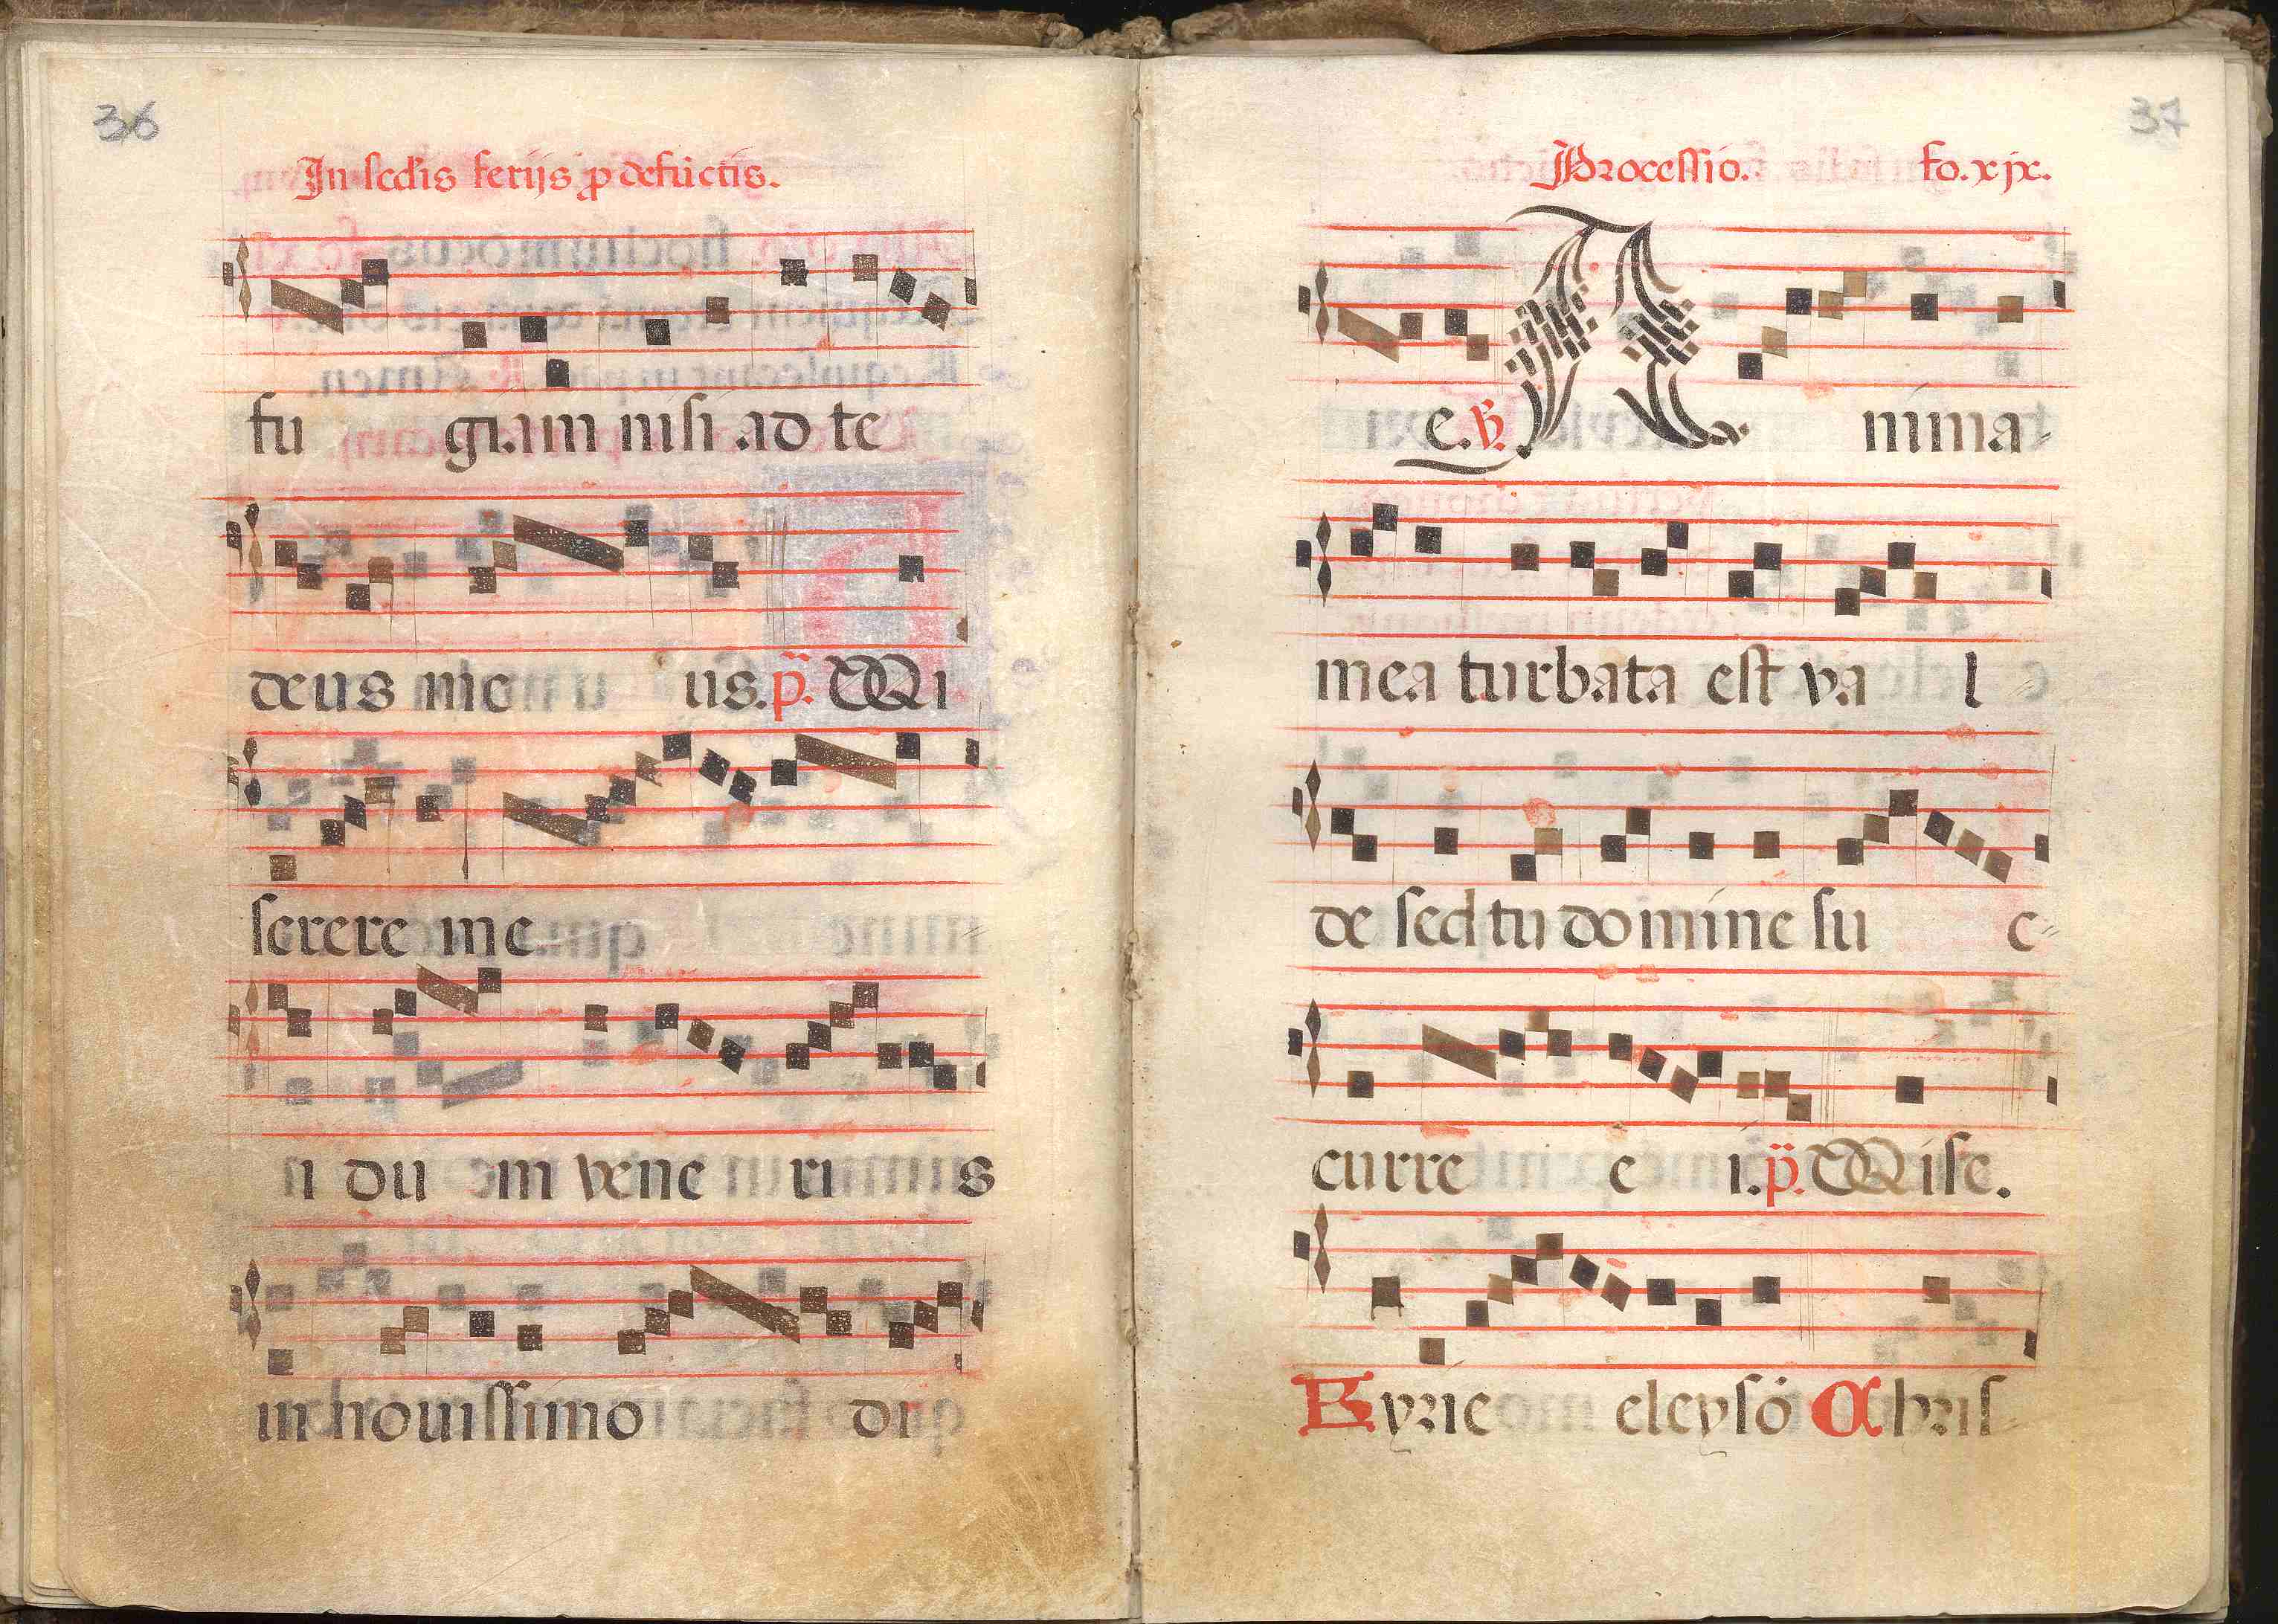 36
In scd'is ferijs p defūctis.
fu giam nisi ad te
deus me us. p̄. Mi
serere me
i du m vene ri s
in nouissimo di
37
Processio. fo. xjx.
e. V. A nima-
mea turbata est va l
de sed tu domine su c-
curre e i. p̄. Mise.
Kyrie eleysō Chris